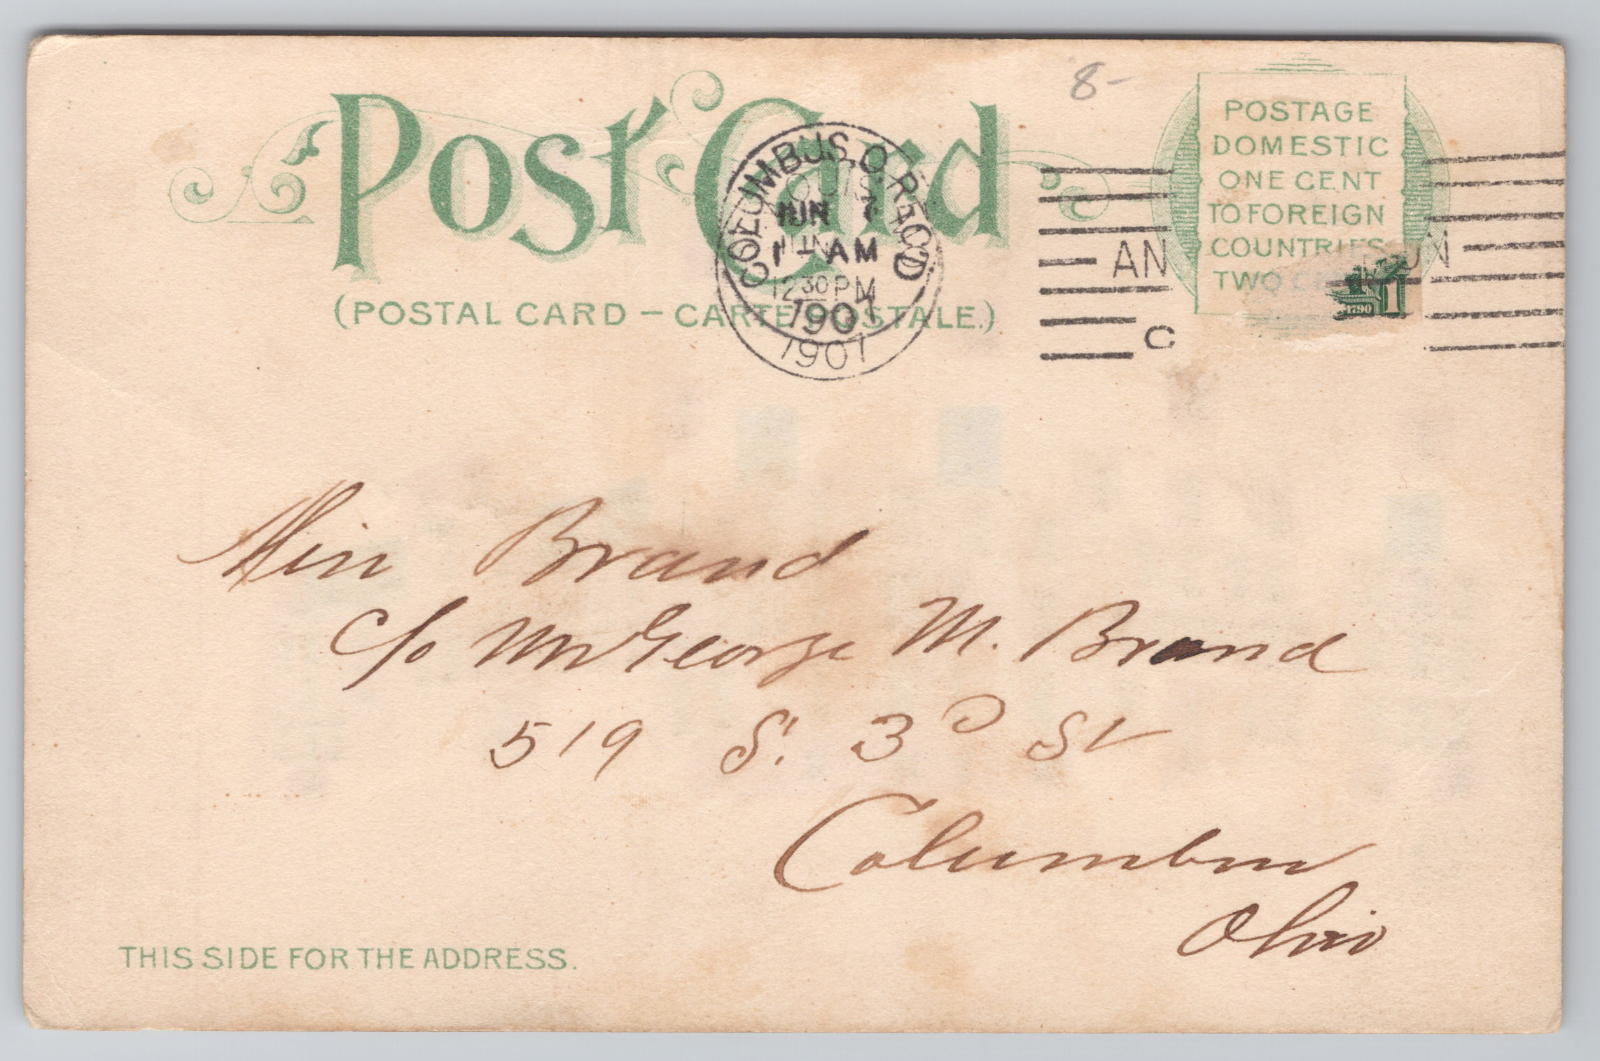 8-
Post Card
(POSTAL CARD – CARTE POSTALE.)
COLUMBUS, O. REC'D
JUN 7
1 – AM
1907
JUN
12 30 PM
1907
AN
C
POSTAGE
DOMESTIC
ONE CENT
TO FOREIGN
COUNTRIES
TWO
1790 1
Miss Brand
c/o Mr George M. Brand
519 S. 3D St
Columbus
Ohio
THIS SIDE FOR THE ADDRESS.